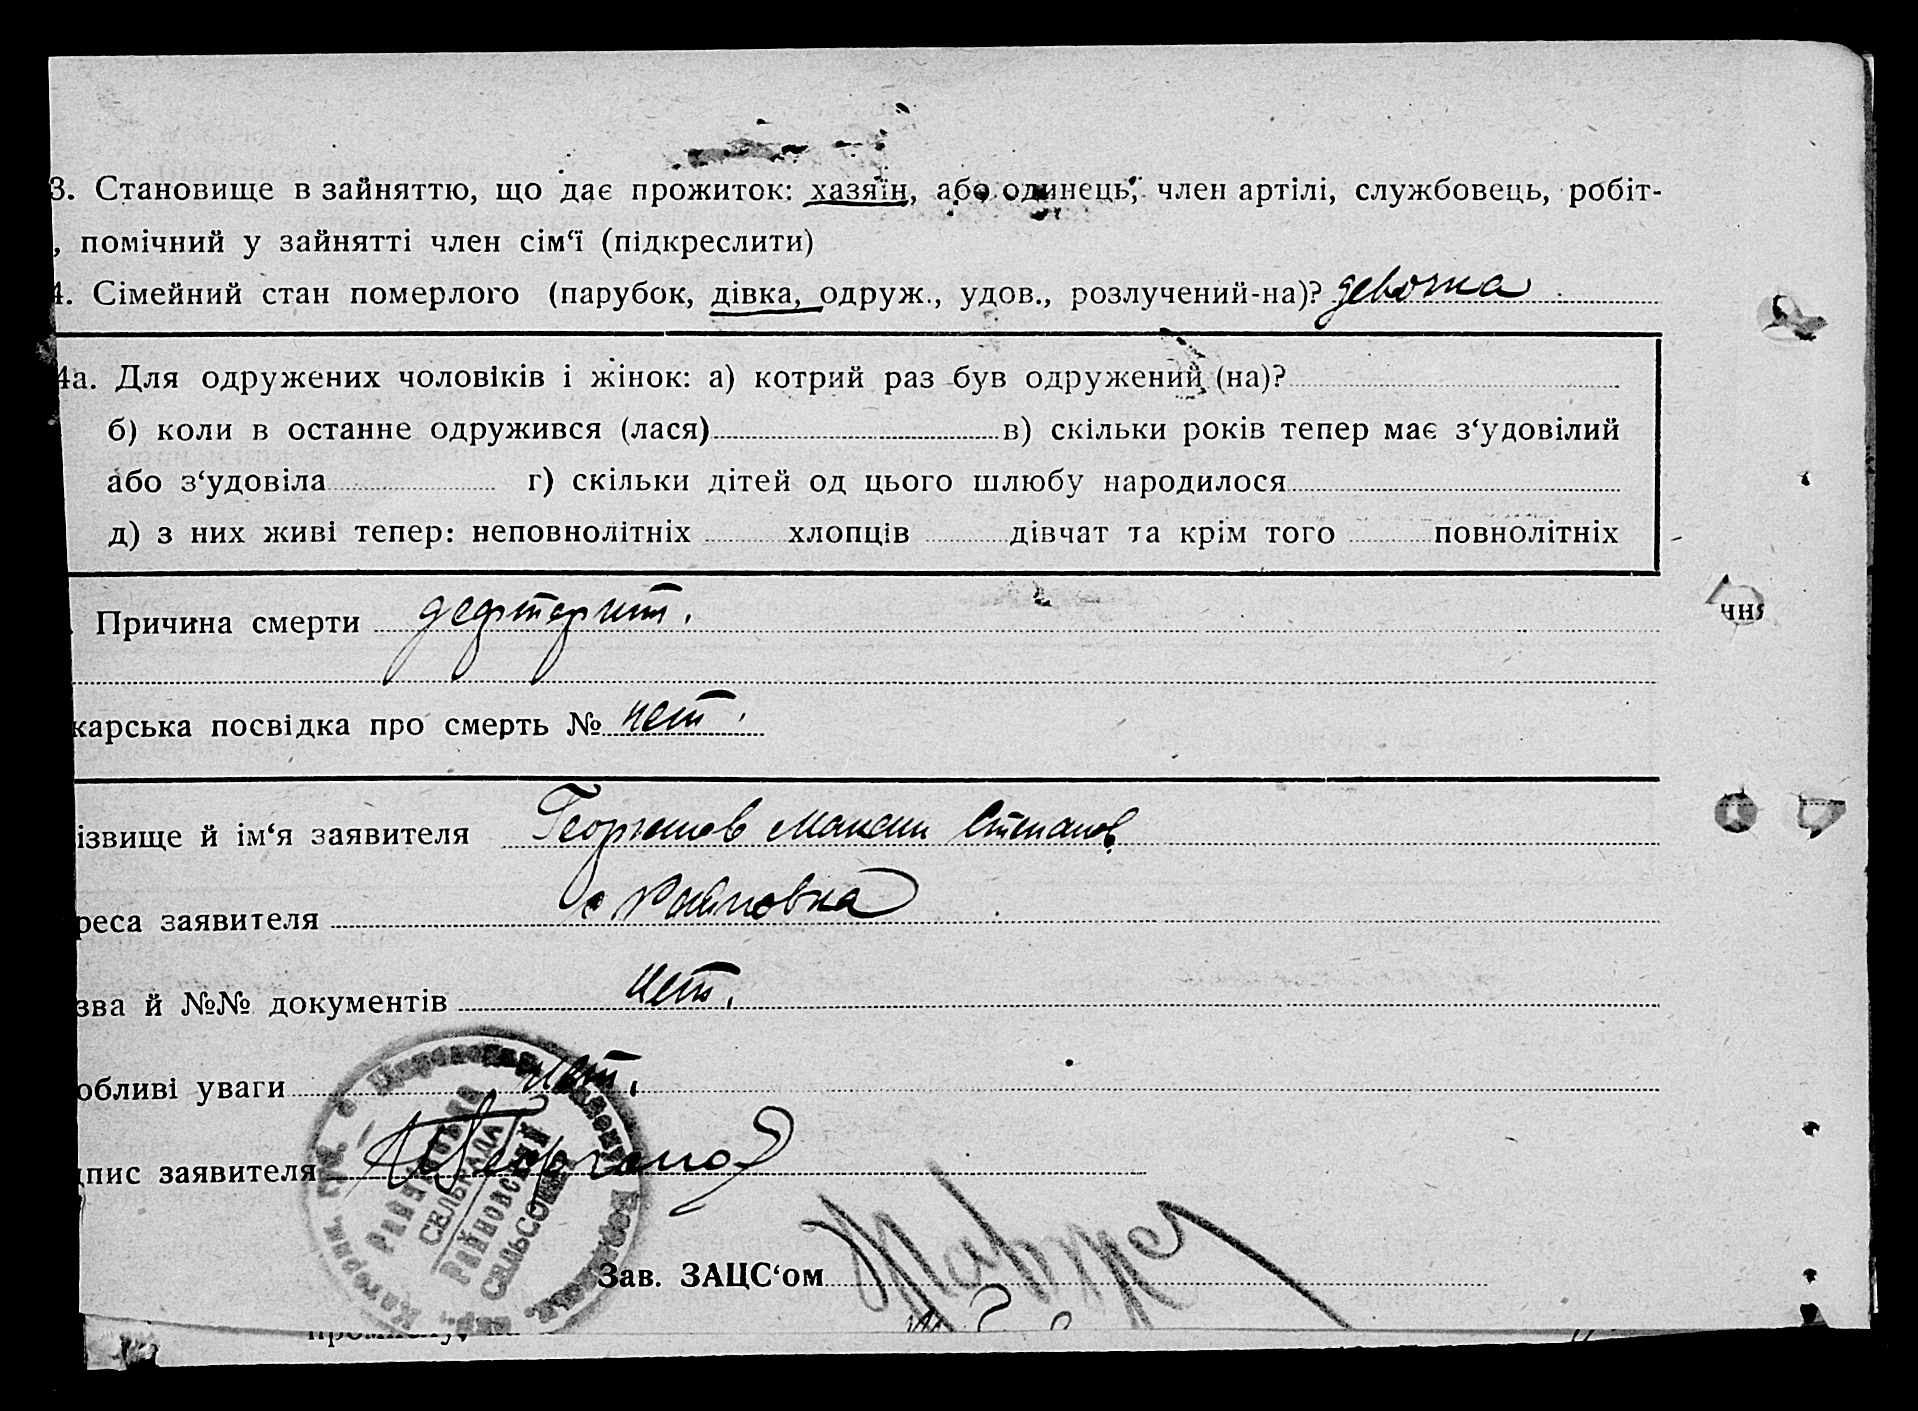 3. Становище в зайняттю, що дає прожиток: хазяїн, або одинець, член артілі, службовець, робіт-
, помічний у зайнятті член сім‘ї (підкреслити)
4. Сімейний стан померлого (парубок, дівка, одруж., удов., розлучений-на)? девочка
4а. Для одружених чоловіків і жінок: а) котрий раз був одружений (на)?
б) коли в останне одружився (лася) в) скільки років тепер має з‘удовілий
або з‘удовіла г) скільки дітей од цього шлюбу народилося
д) з них живі тепер: неповнолітніх хлопців дівчат та крім того повнолітніх
Причина смерти дефтерит.
чня
карська посвідка про смерть № нет.
ізвище й ім‘я заявителя Георгиов Максим Степанов
реса заявителя с Райновка
зва й №№ документів нет.
обливі уваги нет.
дпис заявителя
РАЙНОВСЬКА
СЕЛЬРАДА
РАЙНОВСКИЙ
СЕЛЬСОВЕТ
Зав. ЗАЦС‘ом
промислу,